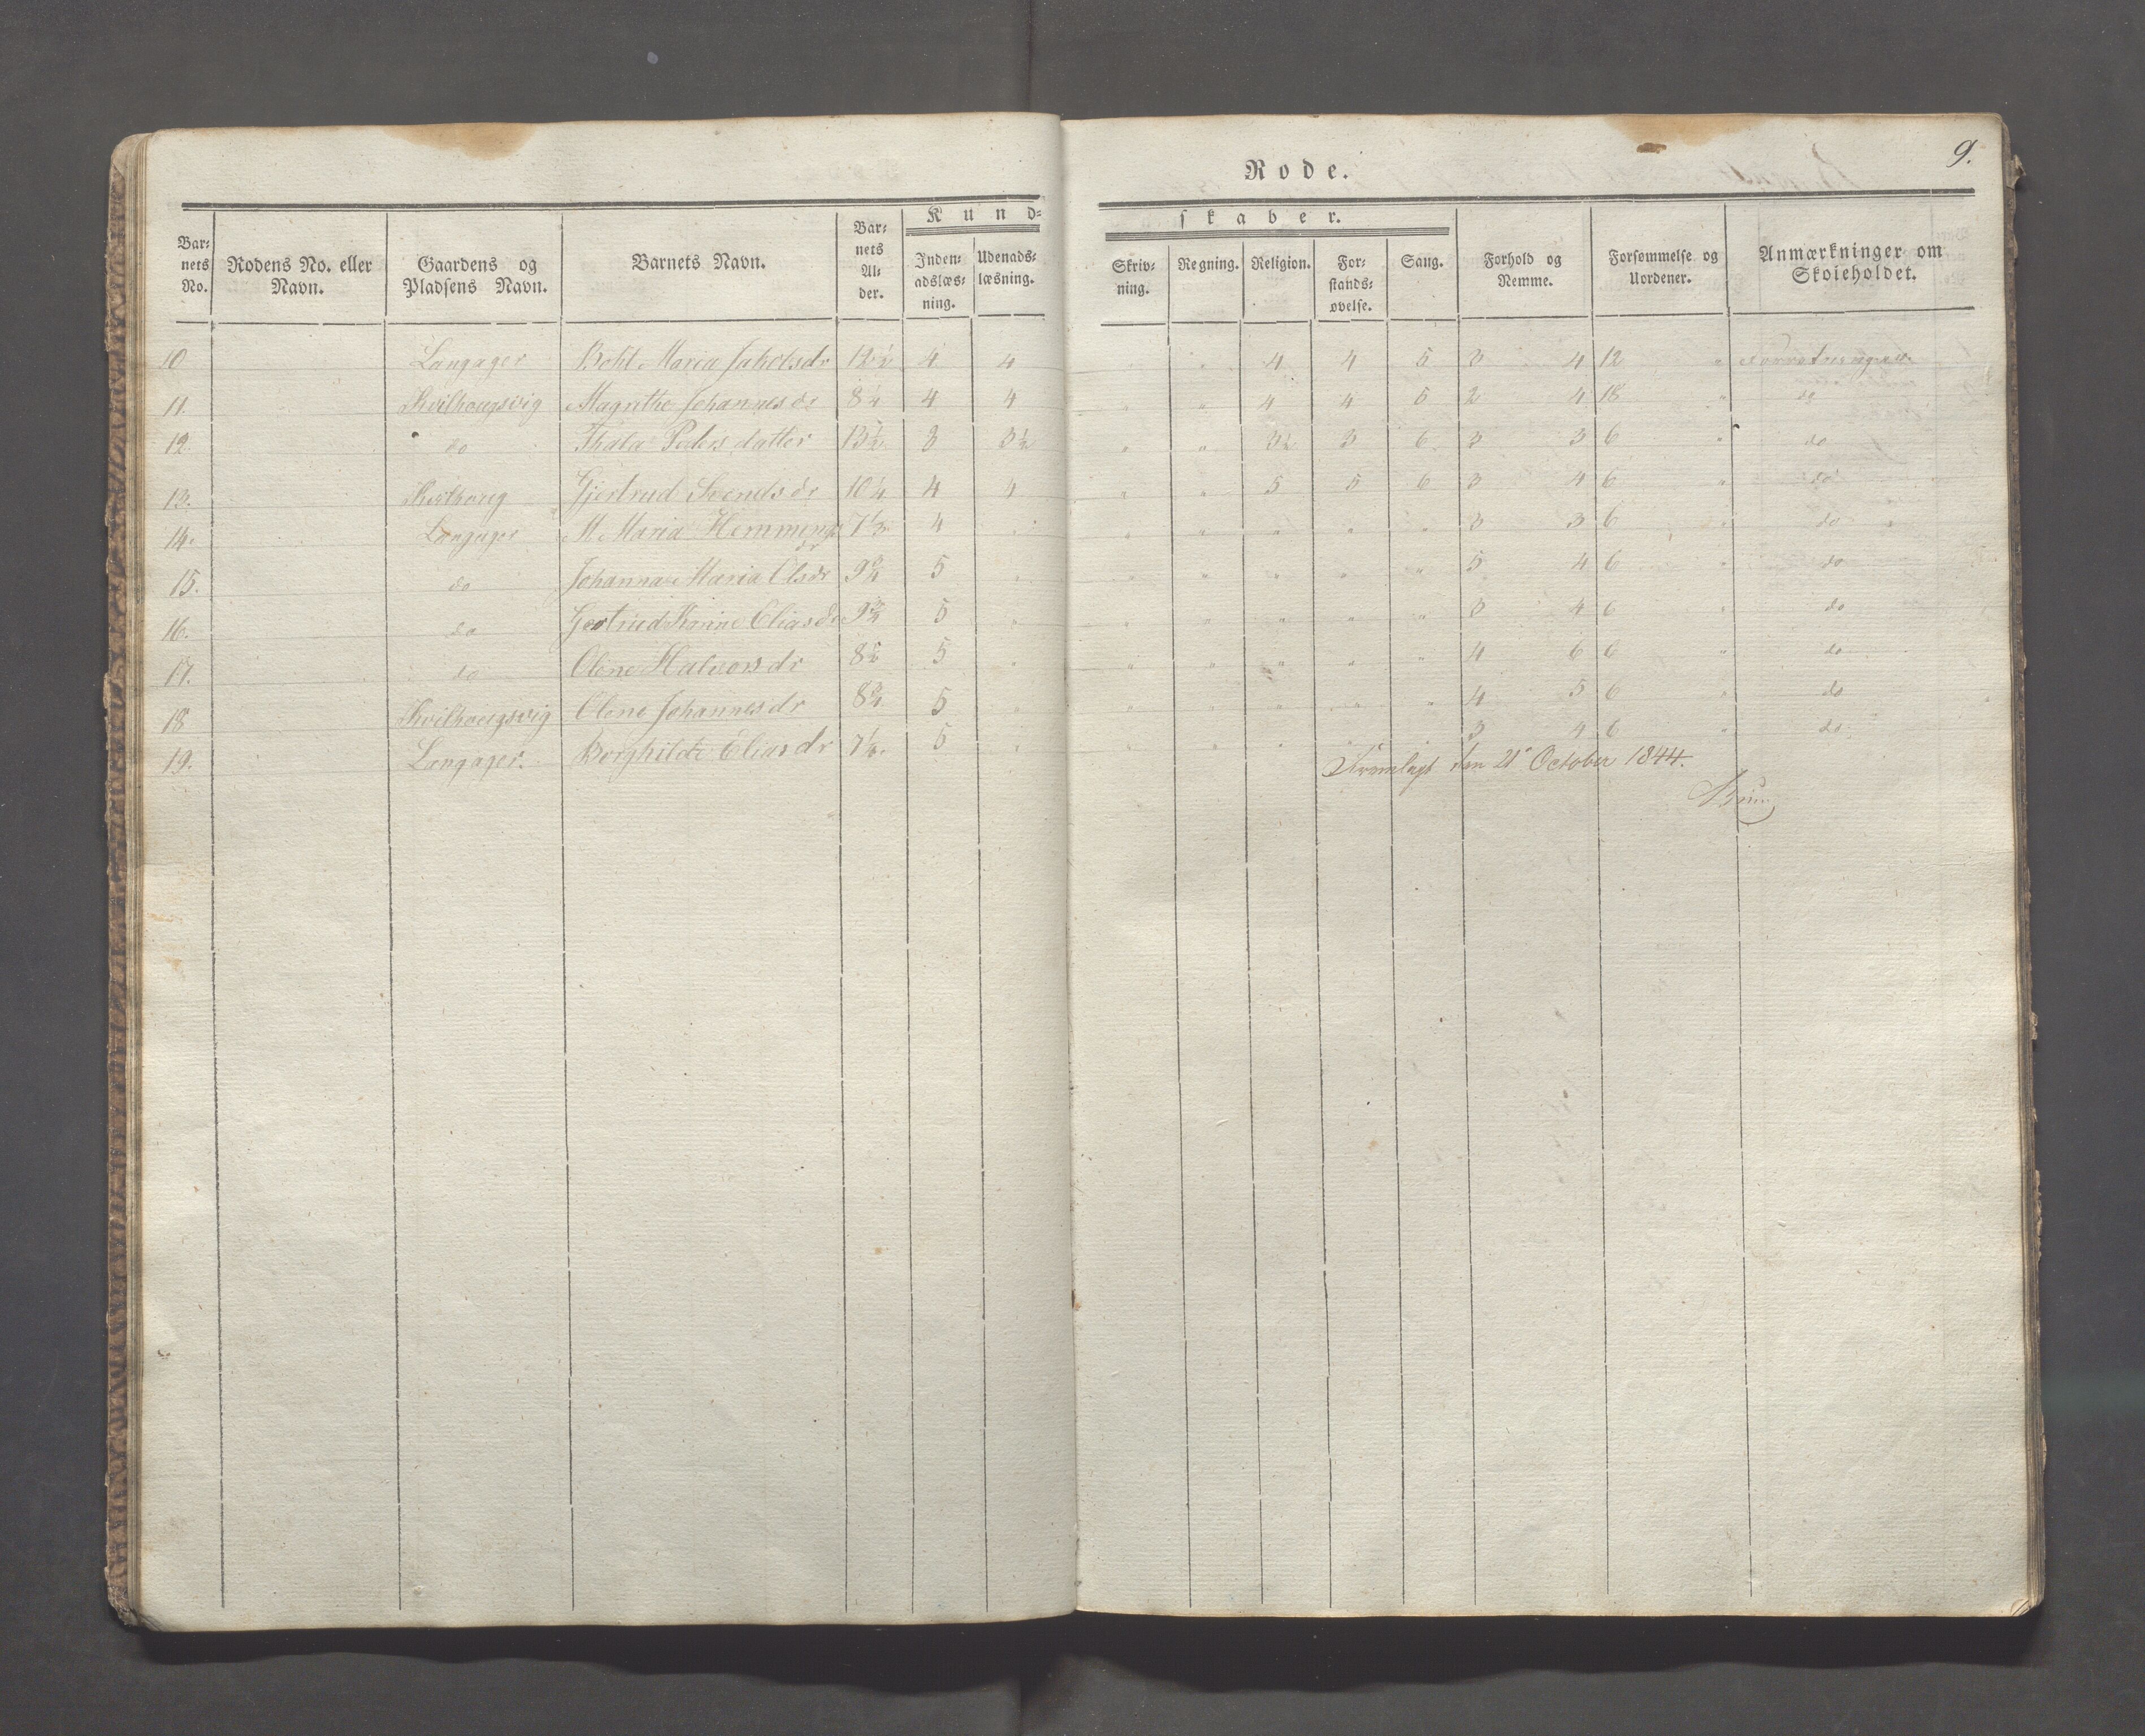 Rode.
9.
Kund=
skaber.
Bar=
nets
No.
Rodens No. eller
Navn.
Gaardens og
Pladsens Navn.
Barnets Navn.
Bar=
nets
Al=
der.
Inden=
adslæs=
ning.
Udenads=
læsning.
Skriv=
ning.
Regning.
Religion.
For=
stands=
øvelse.
Sang.
Forhold og
Nemme.
Forsømmelse og
Uordener.
Anmærkninger om
Skoleholdet.
10 Langager Maria Jakobsdr 12½ 4 4 " " 4 4 5 3 4 12 "
11. Kvilhougsvig Magrithe Johannesdr 8¼ 4 4 " " 4 4 5 2 4 18 " do
12. do Peders datter 13½ 3 3½ " " 3½ 3 6 3 3 6 " do
13. Kvilhoug Gjertrud Svendsdr 10¼ 4 4 " " 5 5 6 3 4 6 " do
14. Langager M. Maria 4 " " " " " " 3 3 6 " do
dr
15. do Johanna Maria Olsdr 9¾ 5 " " " " " " 5 4 6 " do
16. do Gertrud Karine Eliasdr 9¾ 5 " " " " " " 3 4 6 " do
17. do Olene Halvorsdr 5 " " " " " " 4 6 6 " do
18 Kvilhougsvig Olene Johannesdr 8¾ 5 " " " " " " 4 5 6 " do
19. Langager. Borghilde Eliasdr 7¼. 5 " " " " " " 3 4 6 " do
Fremlagt den 21 October 1844.